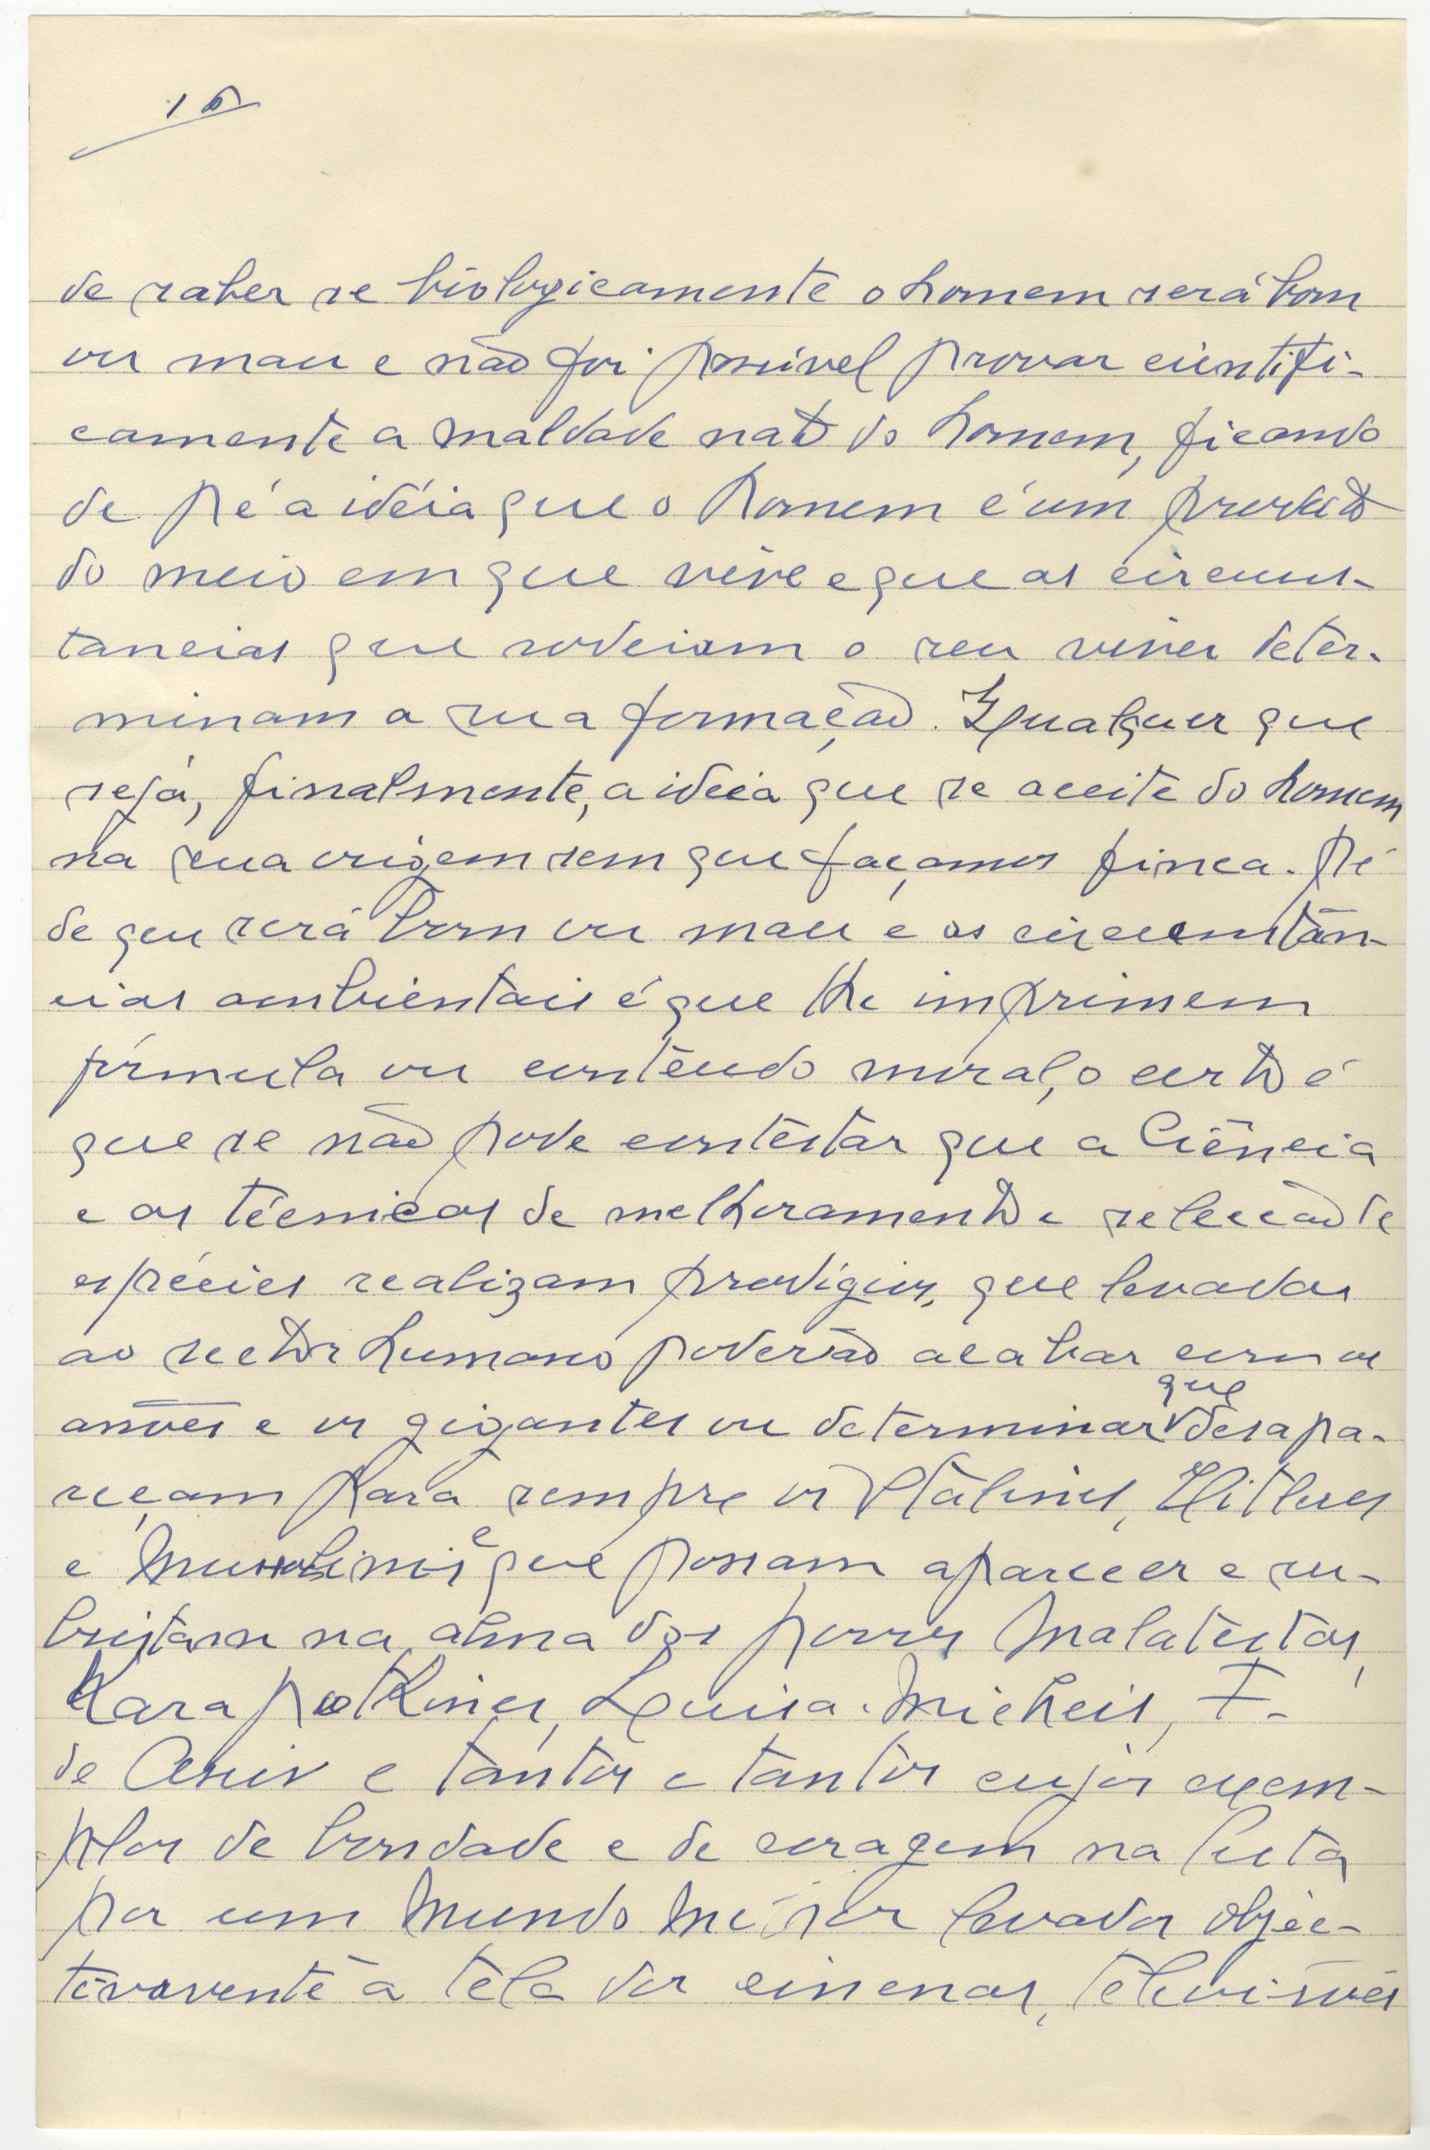 16
de saber se biologicamente o homem será bom
ou mau e não foi possivel provar cientifi-
camente a maldade nato do homem, ficando
de pé a idéia que o homem é um produto
do meio em que vive e que as circuns-
tancias que rodeiam o seu viver deter-
minam a sua formação. Qualquer que
seja, finalmente, a ideia que se aceite do homem
na sua origem sem que façamos finca-pé
de que será bom ou mau e as circunstân-
cias ambientais é que lhe imprimem
fórmula ou conteudo moral, o certo é
que se não pode contestar que a Ciência
e as técnicas de melhoramento e selecção de
espécies realizam prodigios, que levados
ao sector humano poderão acabar com os
anões e os gigantes ou determinar que desapa-
reçam para sempre os Stalines, Hitleres
e Mussolinis e que possam aparecer e su-
bsistam na alma dos povos Malatestas,
Karapotkines, Louisa-Micheis, F.
de Assis e tantos e tantos cujos exem-
plos de bondade e de coragem na luta
por um Mundo Melhor levados objec-
tivavente à tela dos cinemas, televisões